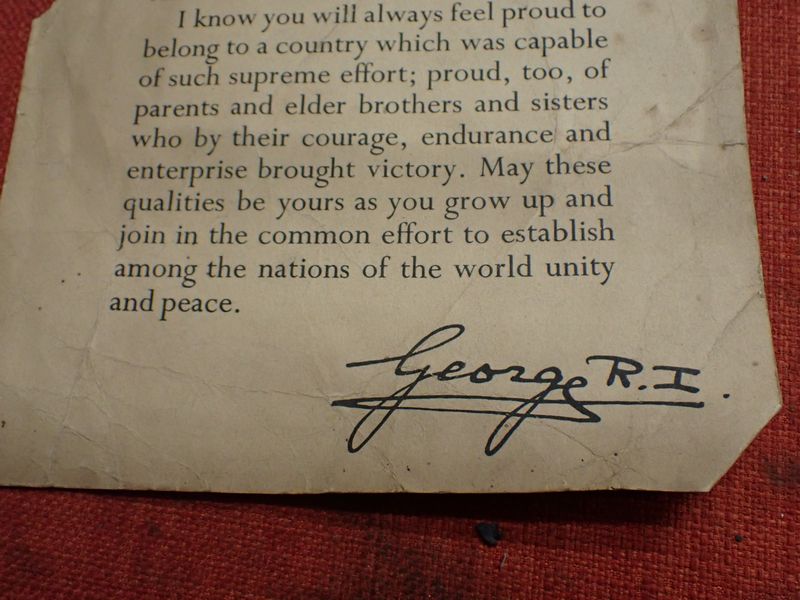 I know you will always feel proud to
belong to a country which was capable
of such supreme effort; proud, too, of
parents and elder brothers and sisters
who by their courage, endurance and
enterprise brought victory. May these
qualities be yours as you grow up and
join in the common effort to establish
among the nations of the world unity
and peace.
George R.I.